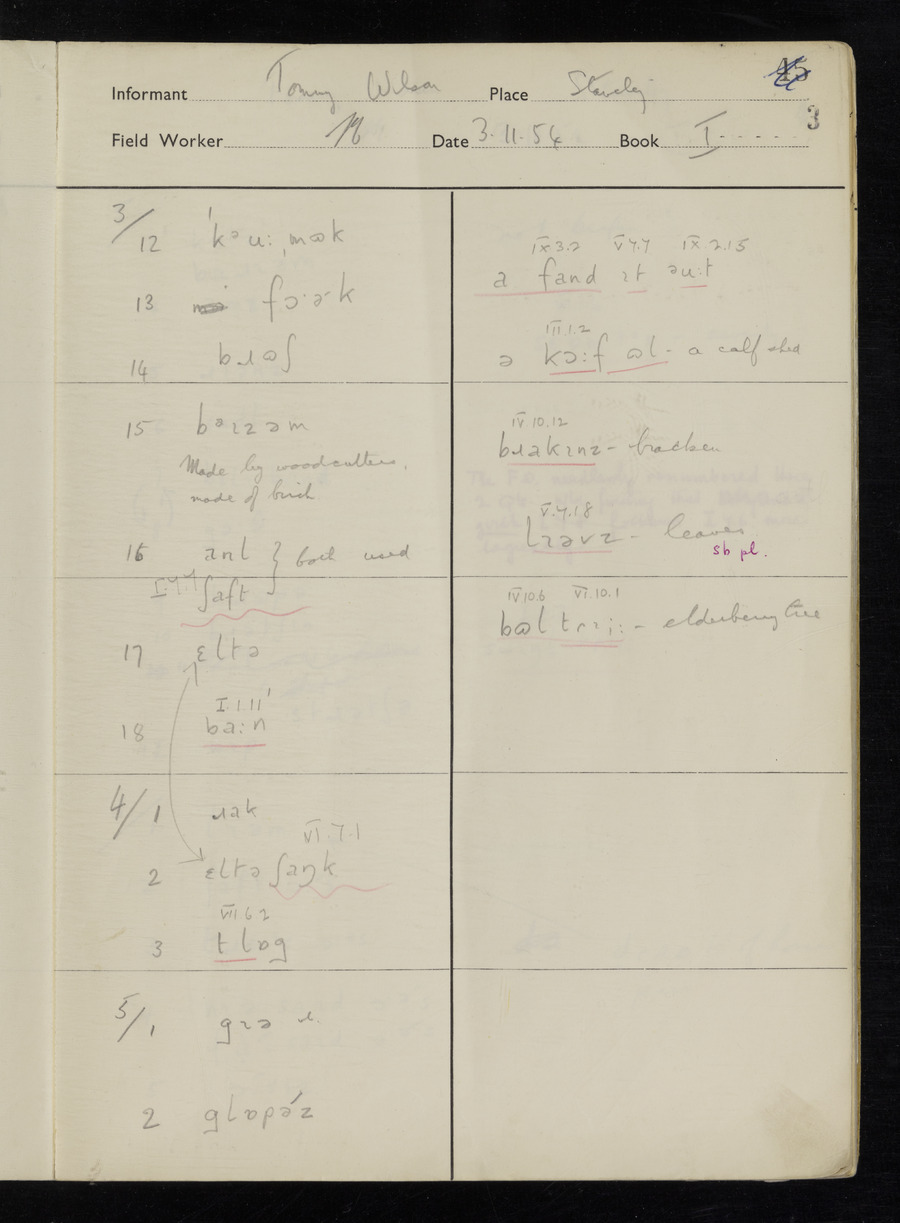 Informant Tommy Wilson Place Staveley 45
3
Field Worker Date 3.11.54 Book I
3/
12 ˈkəu:ˌmɷk
13 fɔ·ə·k
14 bɹɷʃ
15 bəɪzəm
Made by woodcutters,
made of birch
16 anl } both used
I.7.7 ʃaft
17 ɛltə
I.1.11
18 ba:n
4/1 ɹak
VI.7.1
2 ɛltə ʃaŋk
VII 6 2
3 tlɒg
5/1 gɪə ɹ.
2
IX 3.2 V 7.7 IX.2.15
a fand ɪt əu:t
III.1.2
ə kɔ:f ɷl - a calf shed
IV 10.12
bɹakɪnz - bracken
V.4.18
lɪəvz - leaves
sb pl.
IV 10.6 VI.10.1
bɷl tɾɪi: - elderberry tree